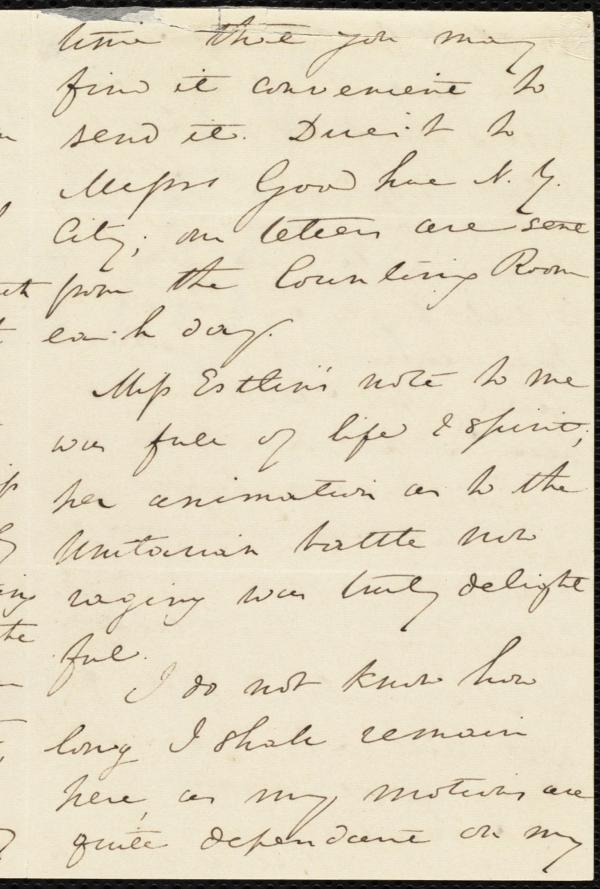 time that you may
find it convenient to
send it. Direct to
Messrs Goodhue N. Y.
City; our letters are sent
from the Counting Room
each day.
Miss Estlin's note to me
was full of life & spirit;
her animation as to the
Unitarian battle now
raging was truly delight
ful.
I do not know how
long I shall remain
here, as my motions are
quite dependant on my